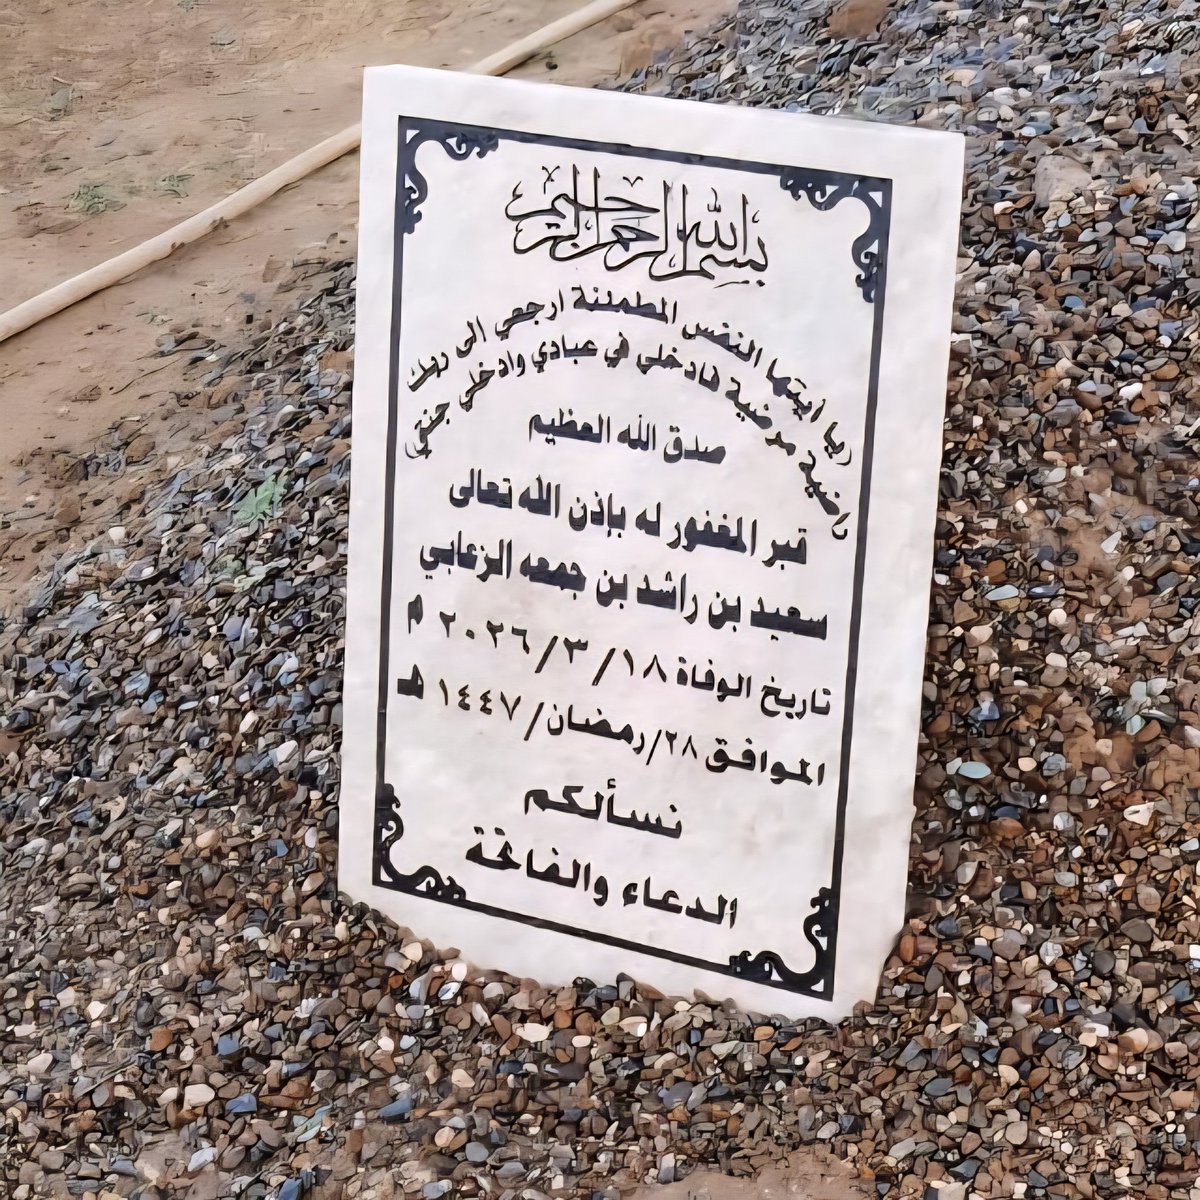 بسم الله الرحمن الرحيم
(يا أيتها النفس المطمئنة ارجعي الى ربك
راضية مرضية فادخلي في عبادي وادخلي جنتي)
صدق الله العظيم
قبر المغفور له بإذن الله تعالى
سعيد بن راشد بن جمعه الزعابي
تاريخ الوفاة ١٨/ ٣/ ٢٠٢٦ م
الموافق ٢٨/رمضان/ ١٤٤٧ هـ
نسألكم
الدعاء والفاتحة